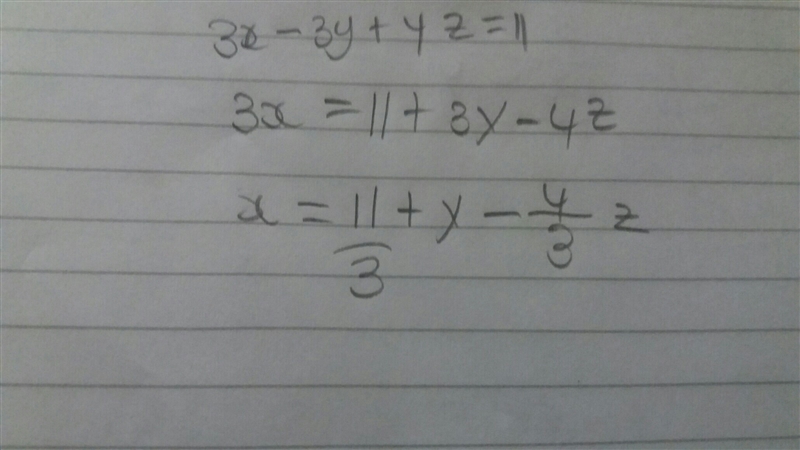 3x - 3y + 4z = 11
3x = 11 + 3y - 4z
x = 11/3 + y - 4/3 z